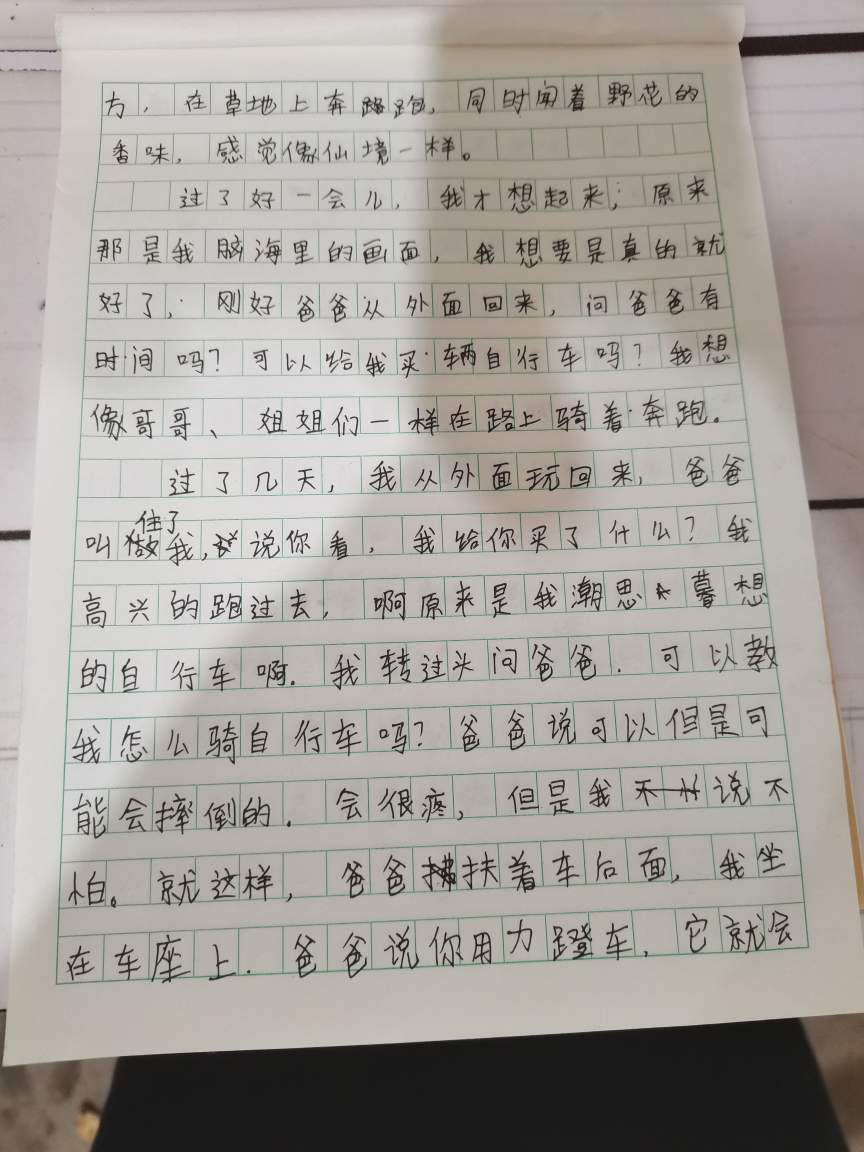 方，在草地上奔跑，同时闻着野花的
香味，感觉像仙境一样。
过了好一会儿，我才想起来；原来
那是我脑海里的画面，我想要是真的就
好了，刚好爸爸从外面回来，问爸爸有
时间吗？可以给我买辆自行车吗？我想
像哥哥、姐姐们一样在路上骑着奔跑.
过了几天，我从外面玩回来，爸爸
叫住了我，说你看，我给你买了什么？我
高兴的跑过去，啊原来是我潮思暮想
的自行车啊.我转过头问爸爸.可以教
我怎么骑自行车吗？爸爸说可以但是可
能会摔倒的.会很疼，但是我说不
怕。就这样，爸爸扶着车后面，我坐
在车座上.爸爸说你用力蹬车，它就会